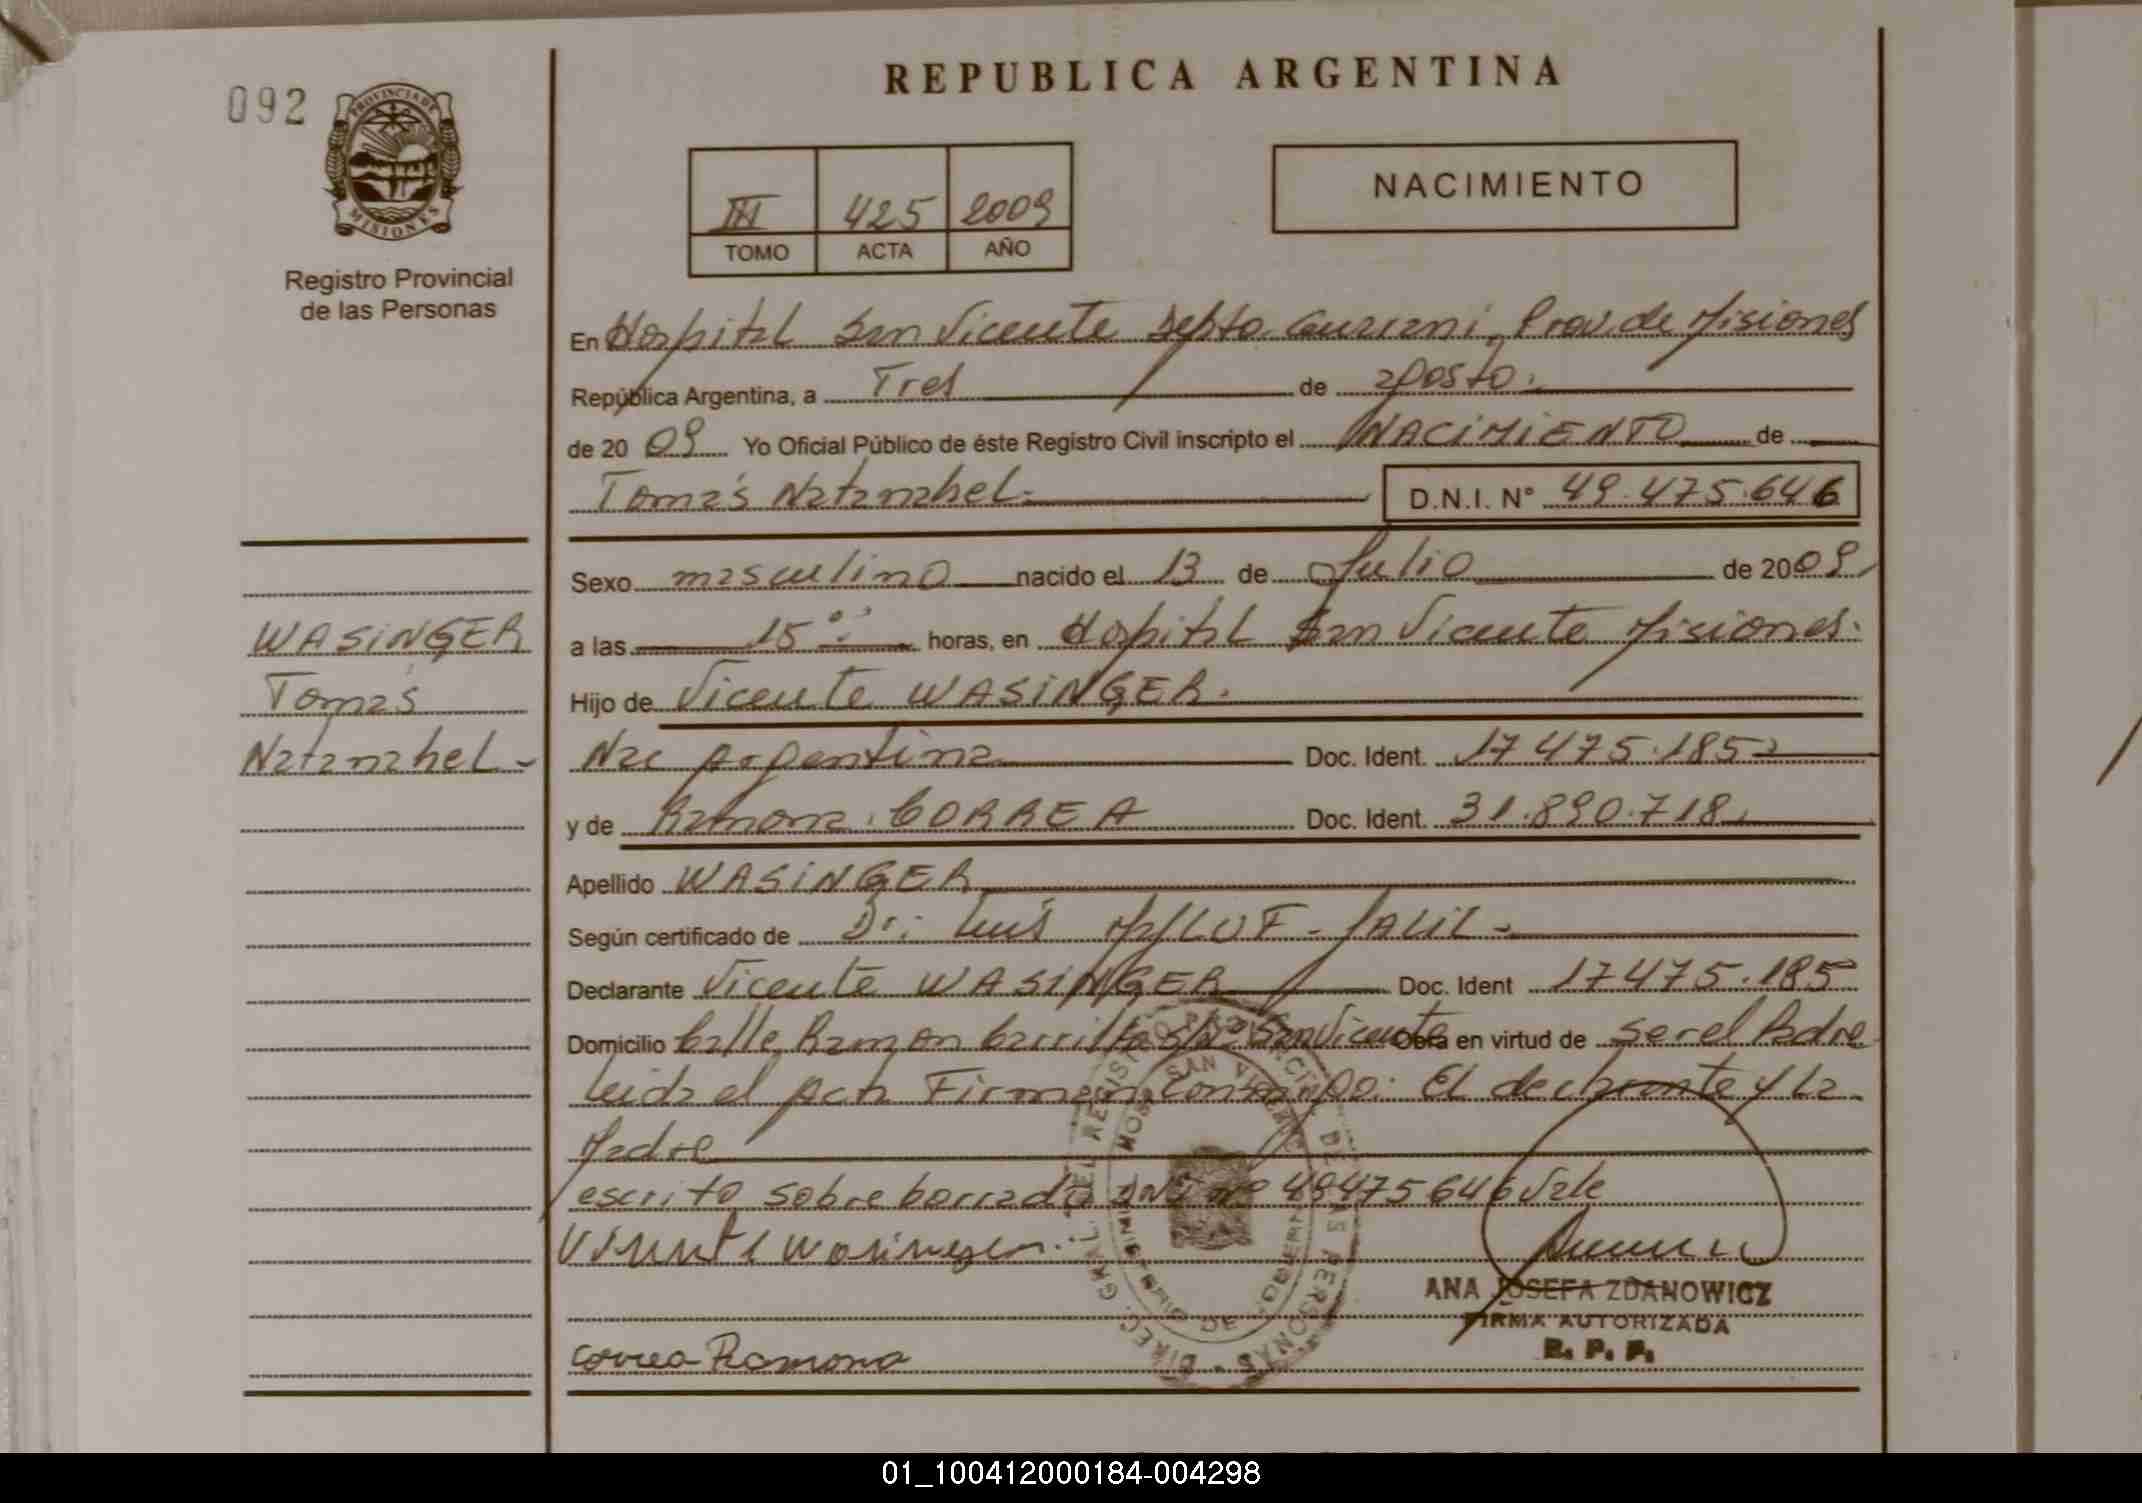 REPUBLICA ARGENTINA
092
PROVINCIA DE
MISIONES
Registro Provincial
de las Personas
III 425 2009
TOMO ACTA AÑO
NACIMIENTO
En Hospital San Vicente Depto Guarani, Prov. de Misiones
República Argentina, a Tres de agosto.
de 20 09 Yo Oficial Público de éste Registro Civil inscripto el NACIMIENTO de
Tomás Natanahel.
D.N.I. N° 49.475.646
Sexo masculino nacido el 13 de Julio de 2009
a las 15 horas, en Hospital San Vicente Misiones.
WASINGER
Tomás
Natanahel-
Hijo de Vicente WASINGER.
Nac Argentina Doc. Ident. 17475.185
y de Ramona CORREA Doc. Ident. 31.890.718
Apellido WASINGER
Según certificado de Dr. Luis JALIL-
Declarante Vicente WASINGER Doc. Ident 17475.185
Domicilio Calle Ramon Carrillo S/Nº San Vicente Obra en virtud de ser el Padre
Leida el Acta Firman Conmigo: El declarante y La
Madre
escrito sobre borrado DNI nº 49475646 Vale
Wasinger
ANA JOSEFA ZDANOWICZ
FIRMA AUTORIZADA
R. P. P.
Correa Ramona
DIREC. GRAL. DEL REGISTRO PROVINCIAL DE LAS PERSONAS
HOSP. SAN VICENTE
MINISTERIO DE GOBIERNO
01_100412000184-004298